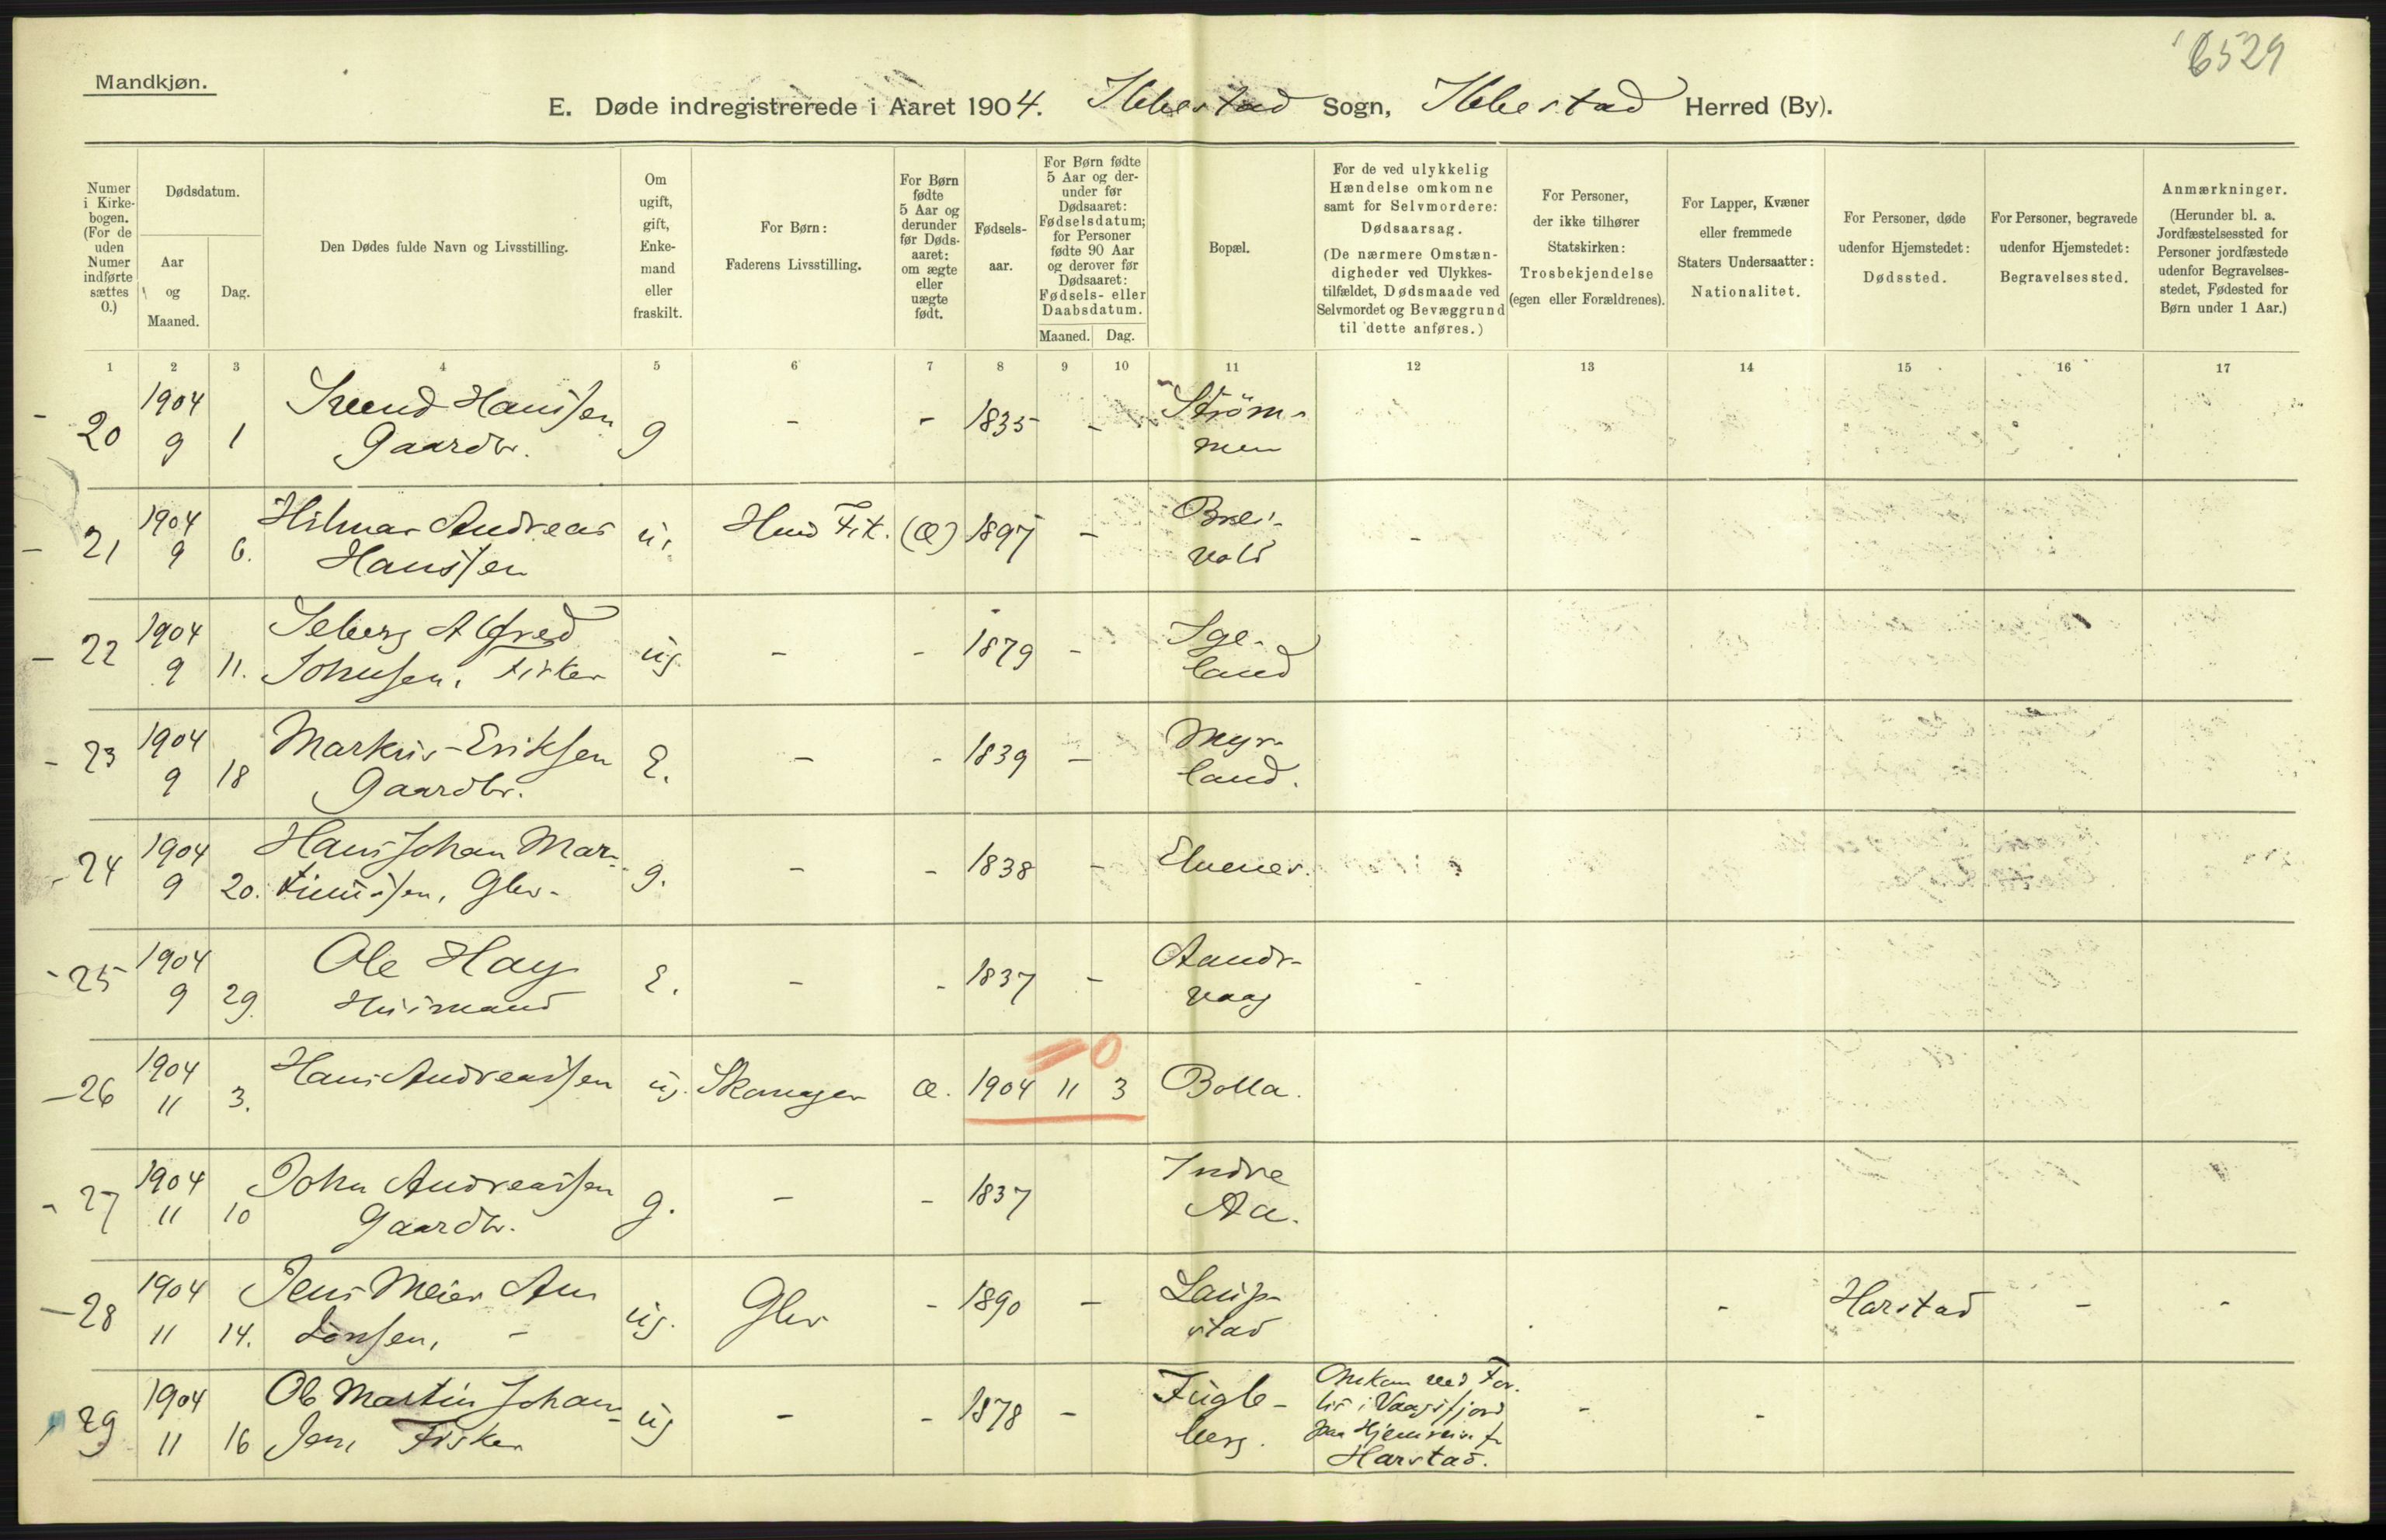 6529
Mandkjøn.
E. Døde indregistrerede i Aaret 1904. Ibbestad Sogn, Ibbestad Herred (By).
Numer i Kirke-bogen. (For de uden Numer indførte sættes 0.)
Dødsdatum.
Aar og Maaned.
Dag.
Den Dødes fulde Navn og Livsstilling.
Om ugift, gift, Enke-mand eller fraskilt.
For Børn: Faderens Livsstilling.
For Børn fødte 5 Aar og derunder før Døds-aaret: om ægte eller uægte født.
Fødsels-aar.
For Børn fødte 5 Aar og der-under før Dødsaaret: Fødselsdatum; for Personer fødte 90 Aar og derover før Dødsaaret: Fødsels- eller Daabsdatum.
Maaned. Dag.
Bopæl.
For de ved ulykkelig Hændelse omkomne samt for Selvmordere: Dødsaarsag. (De nærmere Omstæn-digheder ved Ulykkes-tilfældet, Dødsmaade ved Selvmordet og Bevæggrund til dette anføres.)
For Personer, der ikke tilhører Statskirken: Trosbekjendelse (egen eller Forældrenes).
For Lapper, Kvæner eller fremmede Staters Undersaatter: Nationalitet.
For Personer, døde udenfor Hjemstedet: Dødssted.
For Personer, begravede udenfor Hjemstedet: Begravelsessted.
Anmærkninger. (Herunder bl. a. Jordfæstelsessted for Personer jordfæstede udenfor Begravelses-stedet, Fødested for Børn under 1 Aar.)
1 2 3 4 5 6 7 8 9 10 11 12 13 14 15 16 17
20 1904 9 1 Svend Hanssen Gaardbr. g - - 1835 - Strøm-men
21 1904 9 6. Hilmar Andreas Hanssen u. Husm Fisk. (Æ) 1897 - Brei-vold -
22 1904 9 11. Seberg Alfred Johnsen, Fisker ug - - 1879 - Ige-land
23 1904 9 18 Markus Eriksen Gaardbr. E. - - 1839 - Myr-land.
24 1904 9 20. Hans Johan Mar-tinussen, Gbr. g. - - 1838 - Elvenes.
25 1904 9 29. Ole Hay Husmand E. - - 1837 - Aandr-vaag
26 1904 11 3. Hans Andreassen ug. Skomager Æ. 1904 11 3 Bolla.
0
27 1904 11 10 John Andreassen Gaardbr. g. - - 1837 Indre Aa.
28 1904 11 14. Jens Meier Am Lorsen, - ug. Gbr - 1890 - Laup-stad - Harstad - -
29 1904 11 16 Ole Martin Johan-sen, Fisker ug - - 1878 - Fugle-berg. Omkom ved For-lis i Vaagsfjord paa Hjemreise fr Harstad. - -